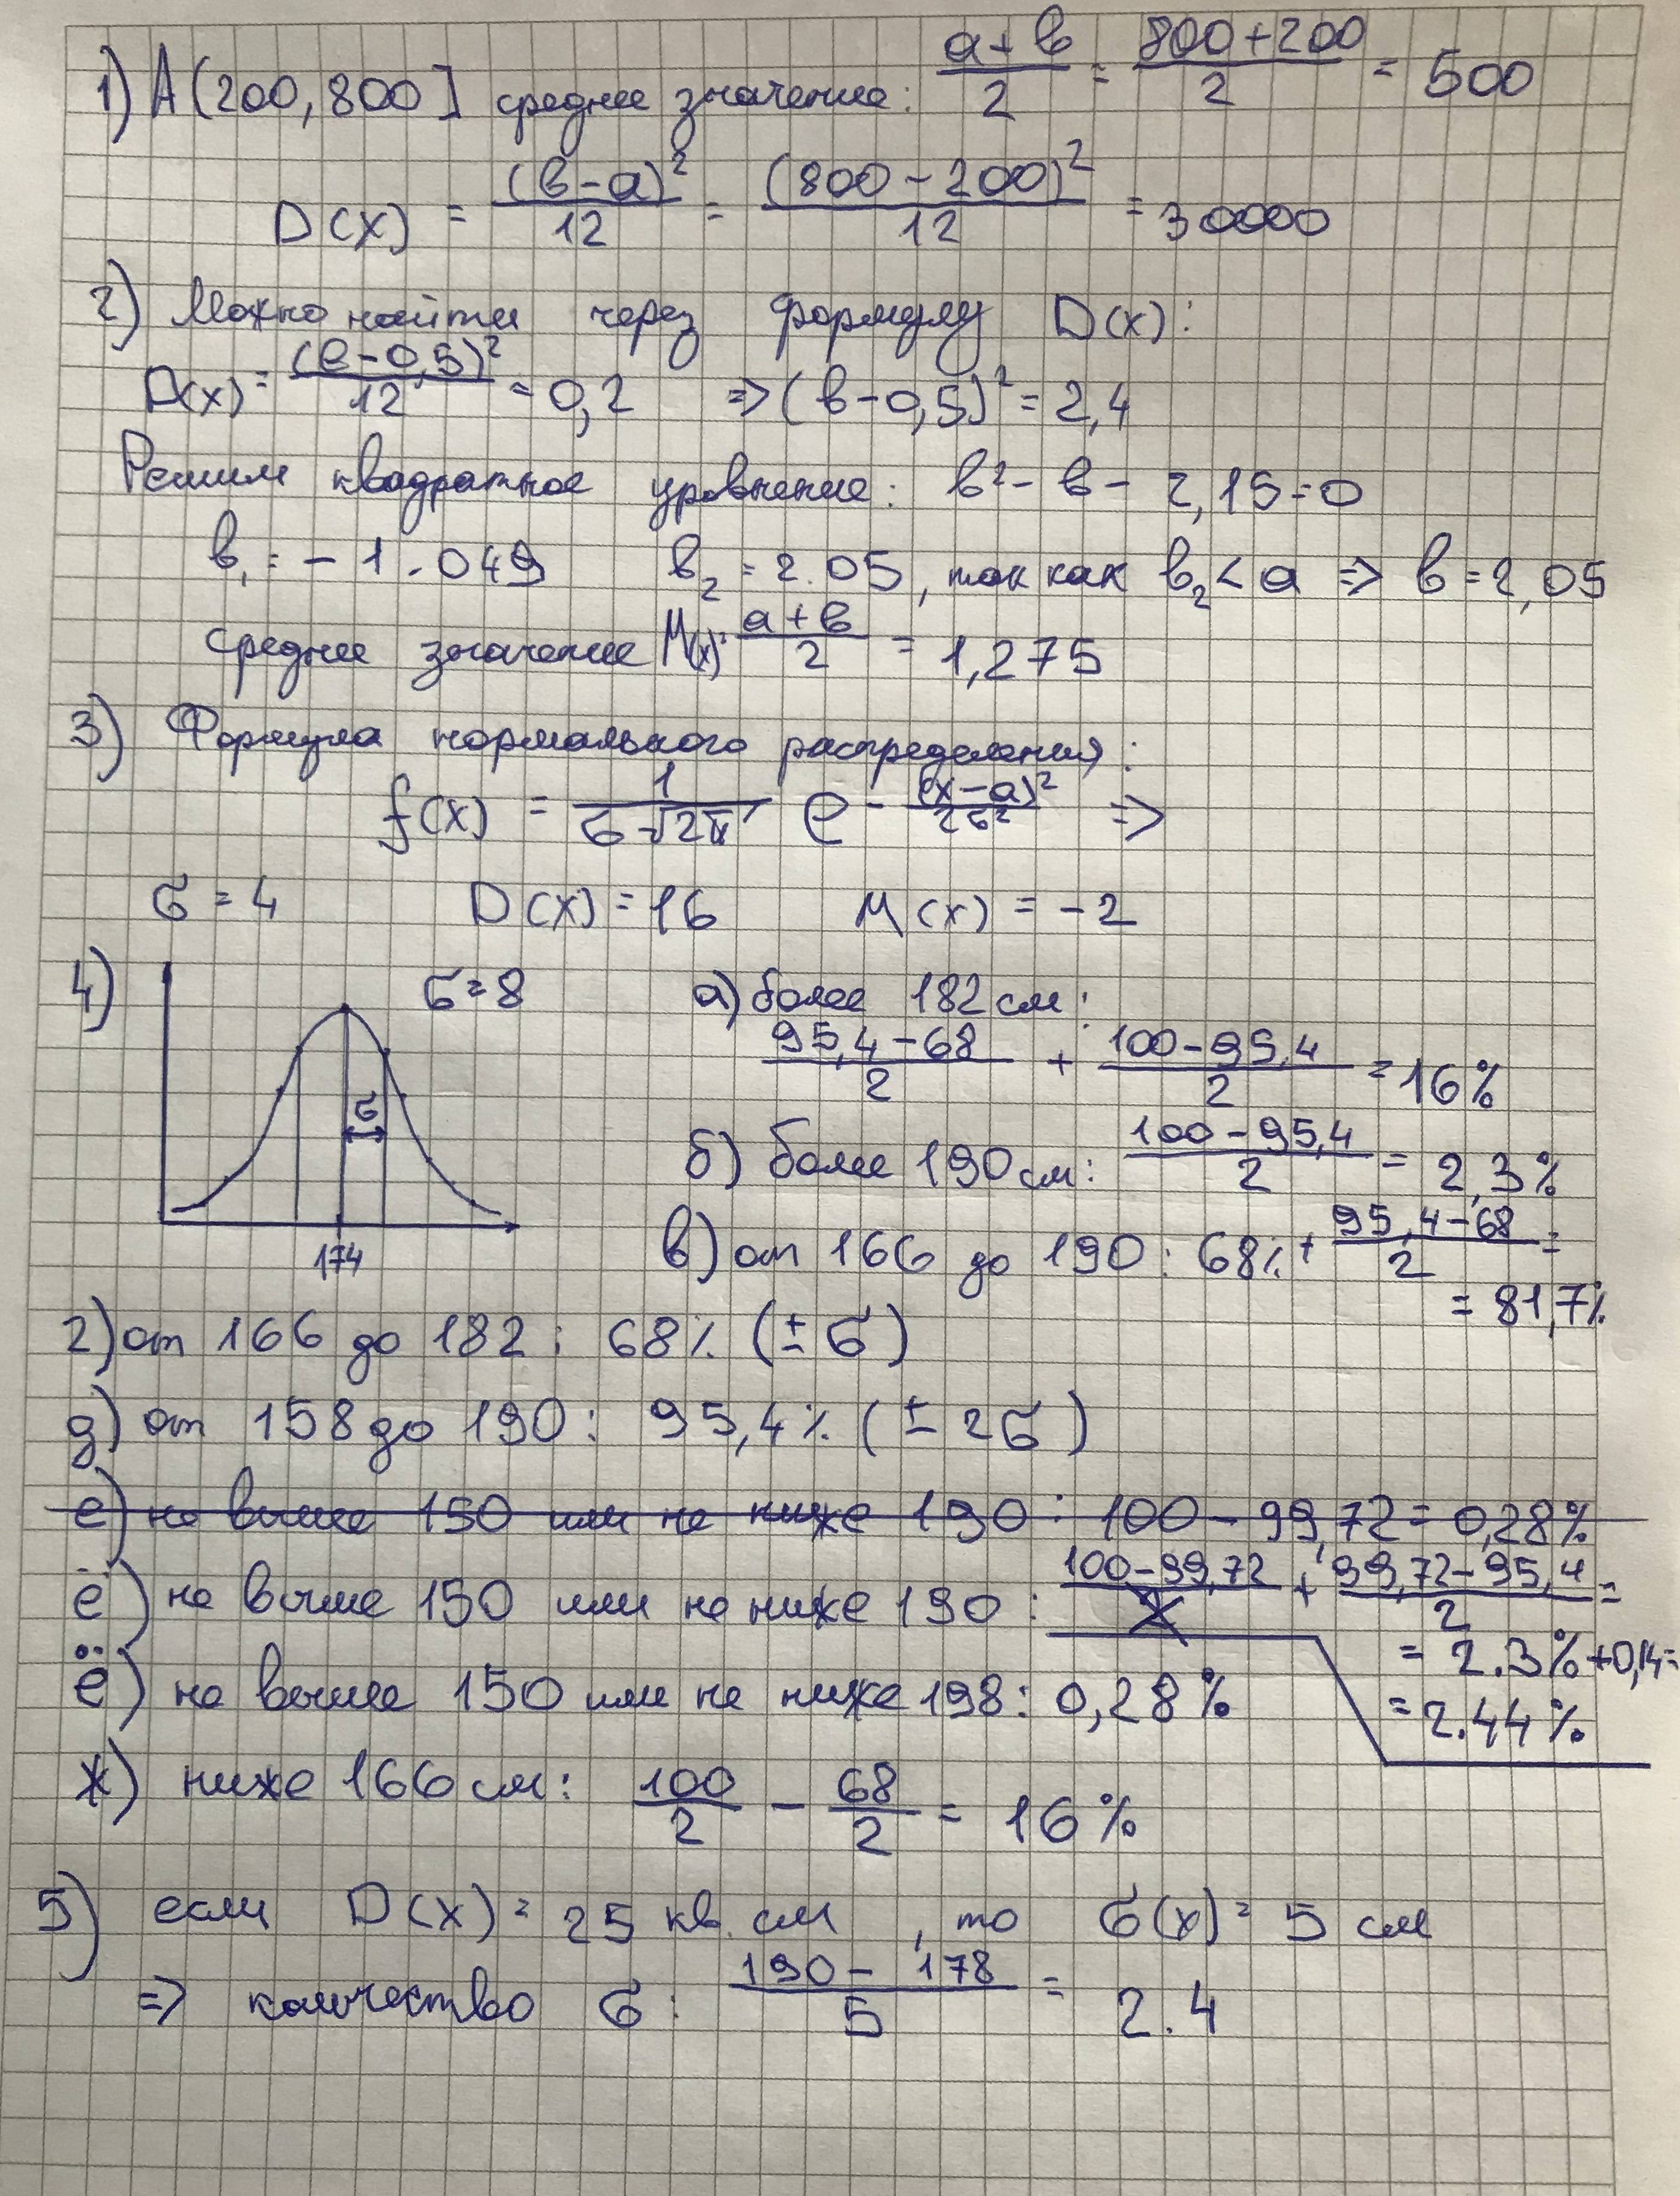 1) A(200, 800] среднее значение: (a+b)/2 = (800+200)/2 = 500
D(x) = (b-a)²/12 = (800-200)²/12 = 30000
2) Можно найти через формулу D(x):
D(x) = (b-0,5)²/12 = 0,2 => (b-0,5)² = 2,4
Решим квадратное уравнение: b² - b - 2,15=0
b₁ = -1.049 b₂ = 2.05, так как b₂ < a => b = 2,05
среднее значение M(x): (a+b)/2 = 1,275
3) Формула нормального распределения:
f(x) = 1/(σ√2π) e^(-(x-a)²/2σ²) =>
σ = 4 D(x) = 16 M(x) = -2
4) σ = 8
σ
174
а) более 182 см:
(95,4-68)/2 + (100-95,4)/2 = 16%
б) более 190 см: (100-95,4)/2 = 2,3%
в) от 166 до 190: 68% + (95,4-68)/2 =
= 81,7%
г) от 166 до 182: 68% (±σ)
д) от 158 до 190: 95,4% (±2σ)
е) не выше 150 или не ниже 190: 100-99,72 = 0,28%
е) не выше 150 или не ниже 190: (100-99,72)/2 + (99,72-95,4)/2 =
= 2.3% +0,14=
= 2.44%
ё) не выше 150 или не ниже 198: 0,28%
ж) ниже 166 см: 100/2 - 68/2 = 16%
5) если D(x) = 25 кв. см, то σ(x) = 5 см
=> количество σ: (190-178)/5 = 2.4